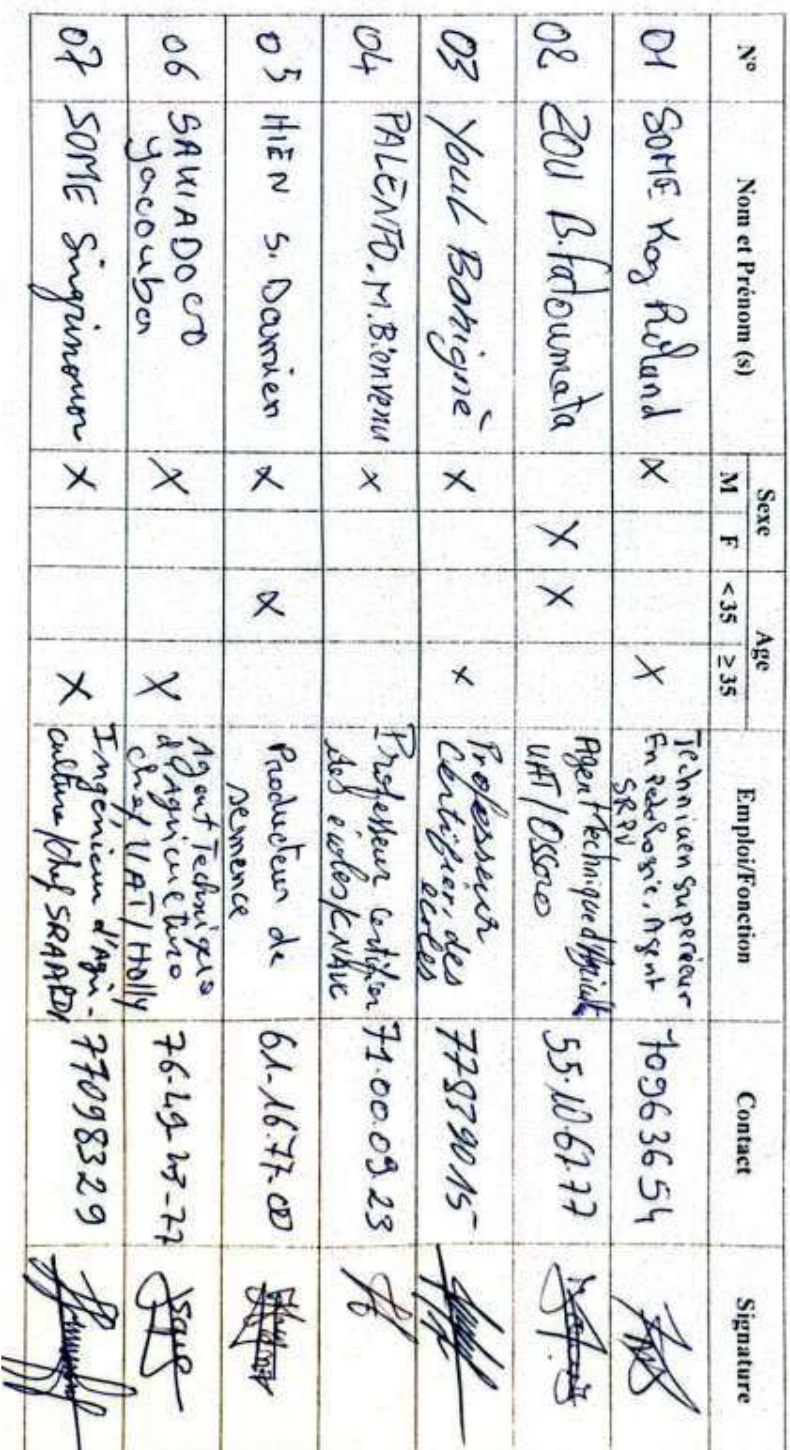 N° Nom et Prénom (s) Sexe Age Emploi/Fonction Contact Signature
M F < 35 ≥ 35
01 SOME Roland X X Technicien Supérieur
En Pédologie, Agent
SRPV 70963654
02 ZOU B. Fatoumata X X Agent technique d'Agricult
UAT/Ossoro 55.10.67.77
03 YOUL Bonigne X X Professeur
Certifier des
écoles 77539015
04 PALENFO. M. Bienvenu X Professeur certifier
des écoles/ 71.00.09.23
05 HIEN S. Damien X X Producteur de
semence 61-16.77.00
06 SAWADOGO
Yacouba X X Agent Technique
d'Agriculture
chef UAT/Holly 76-49-23-77
07 SOME X X Ingénieur d'Agri-
culture/chef 77098329